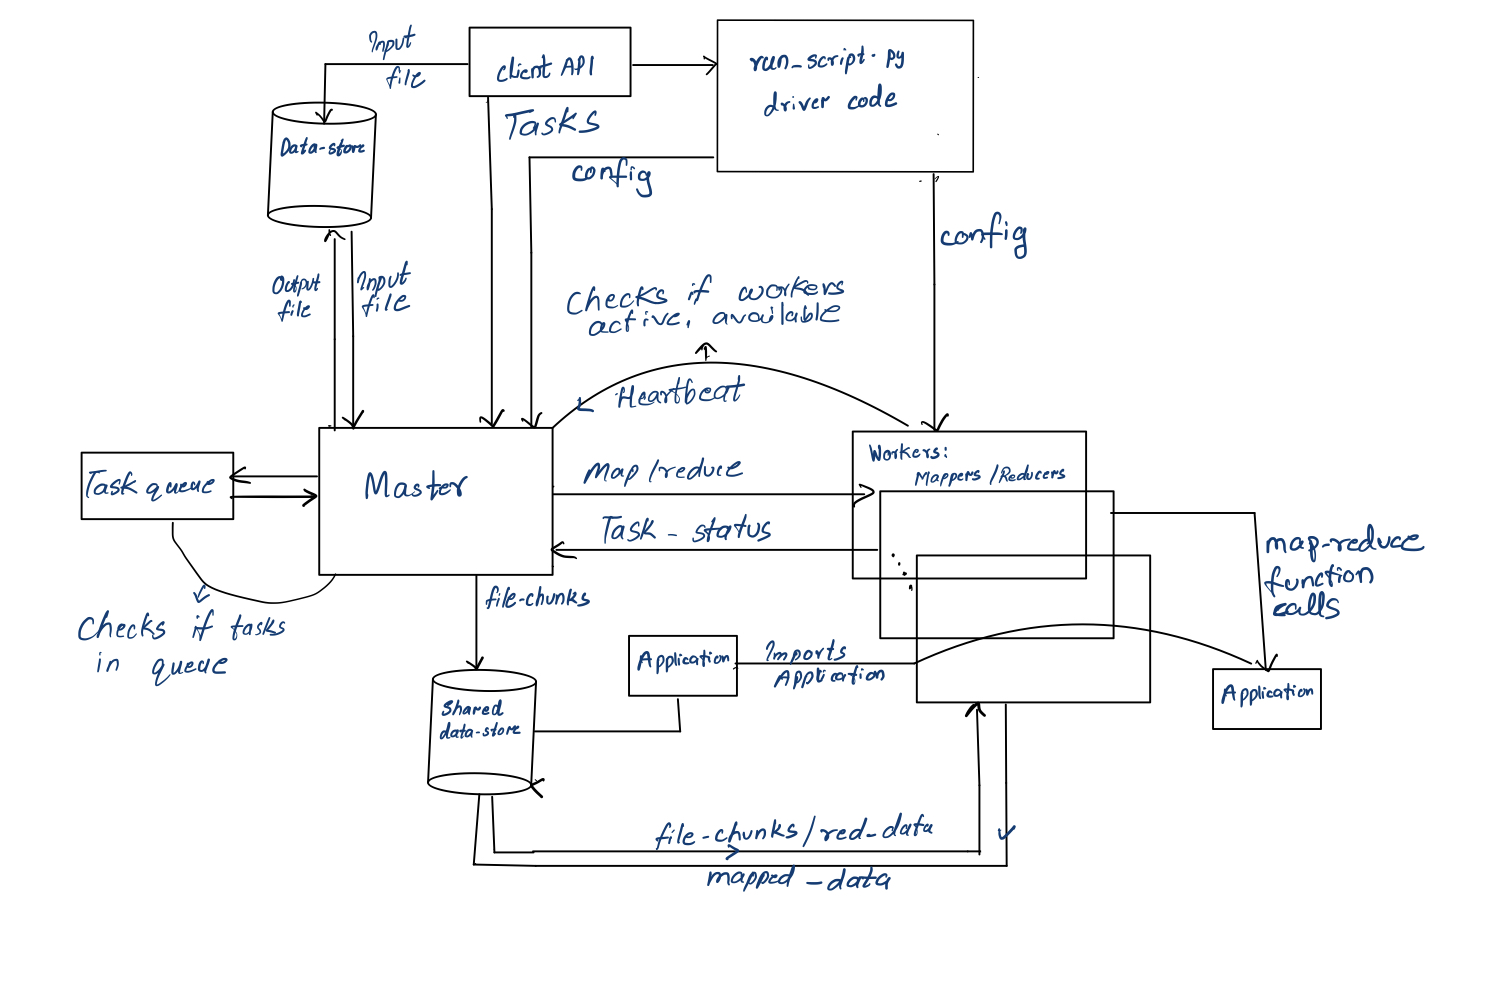 Input
file
client API
run_script.py
driver code
Tasks
config
Data-store
config
Output
file
Input
file
Checks if workers
active, available
Heartbeat
Master
Task queue
Map/reduce
Workers:
Mappers/Reducers
Task_status
map-reduce
function
calls
file-chunks
Checks if tasks
in queue
Application
Imports
Application
Application
Shared
data-store
file-chunks/red_data
mapped_data